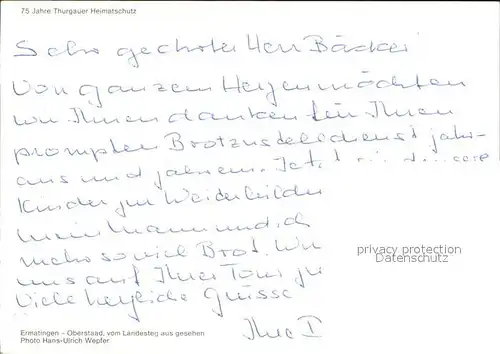 75 Jahre Thurgauer Heimatschutz
Sehr geehrter Herr Bäcker
Von ganzem Herzen möchten
wir Ihnen danken für Ihren
prompten Brotzustelldienst jahr-
aus und jahrein. Jetzt
Kinder zur Weiterbildu
mein Mann und ich
mehr so viel Brot. Wir
uns auf Ihrer Tour zu
Viele herzliche Grüsse
Ihre
privacy protection
Datenschutz
Ermatingen – Oberstaad, vom Landesteg aus gesehen
Photo Hans-Ulrich Wepfer